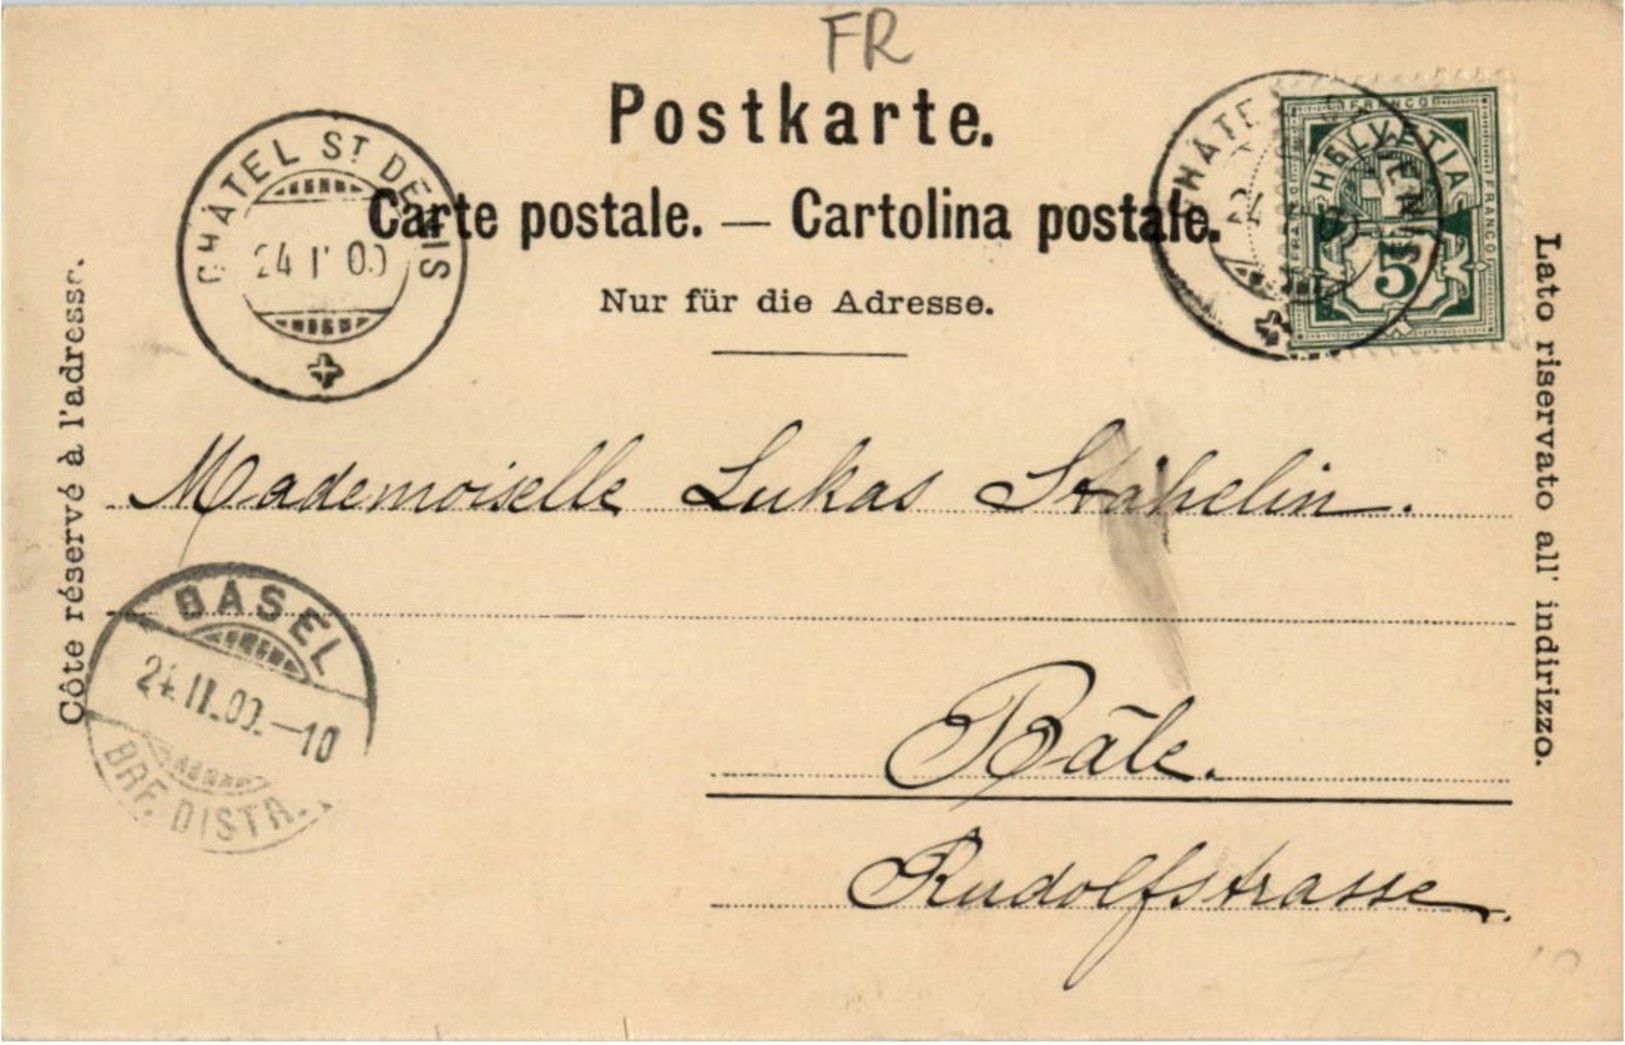 FR
Postkarte.
Carte postale. — Cartolina postale.
Nur für die Adresse.
CHÂTEL ST DENIS
24 00
FRANCO
HELVETIA
FRANCO
FRANCO
5
Côté réservé à l'adresse.
Lato riservato all' indirizzo.
Mademoiselle Lukas Stähelin.
BASEL
24.II.00.-10
BRF. DISTR.
Bâle.
Rudolfstrasse.